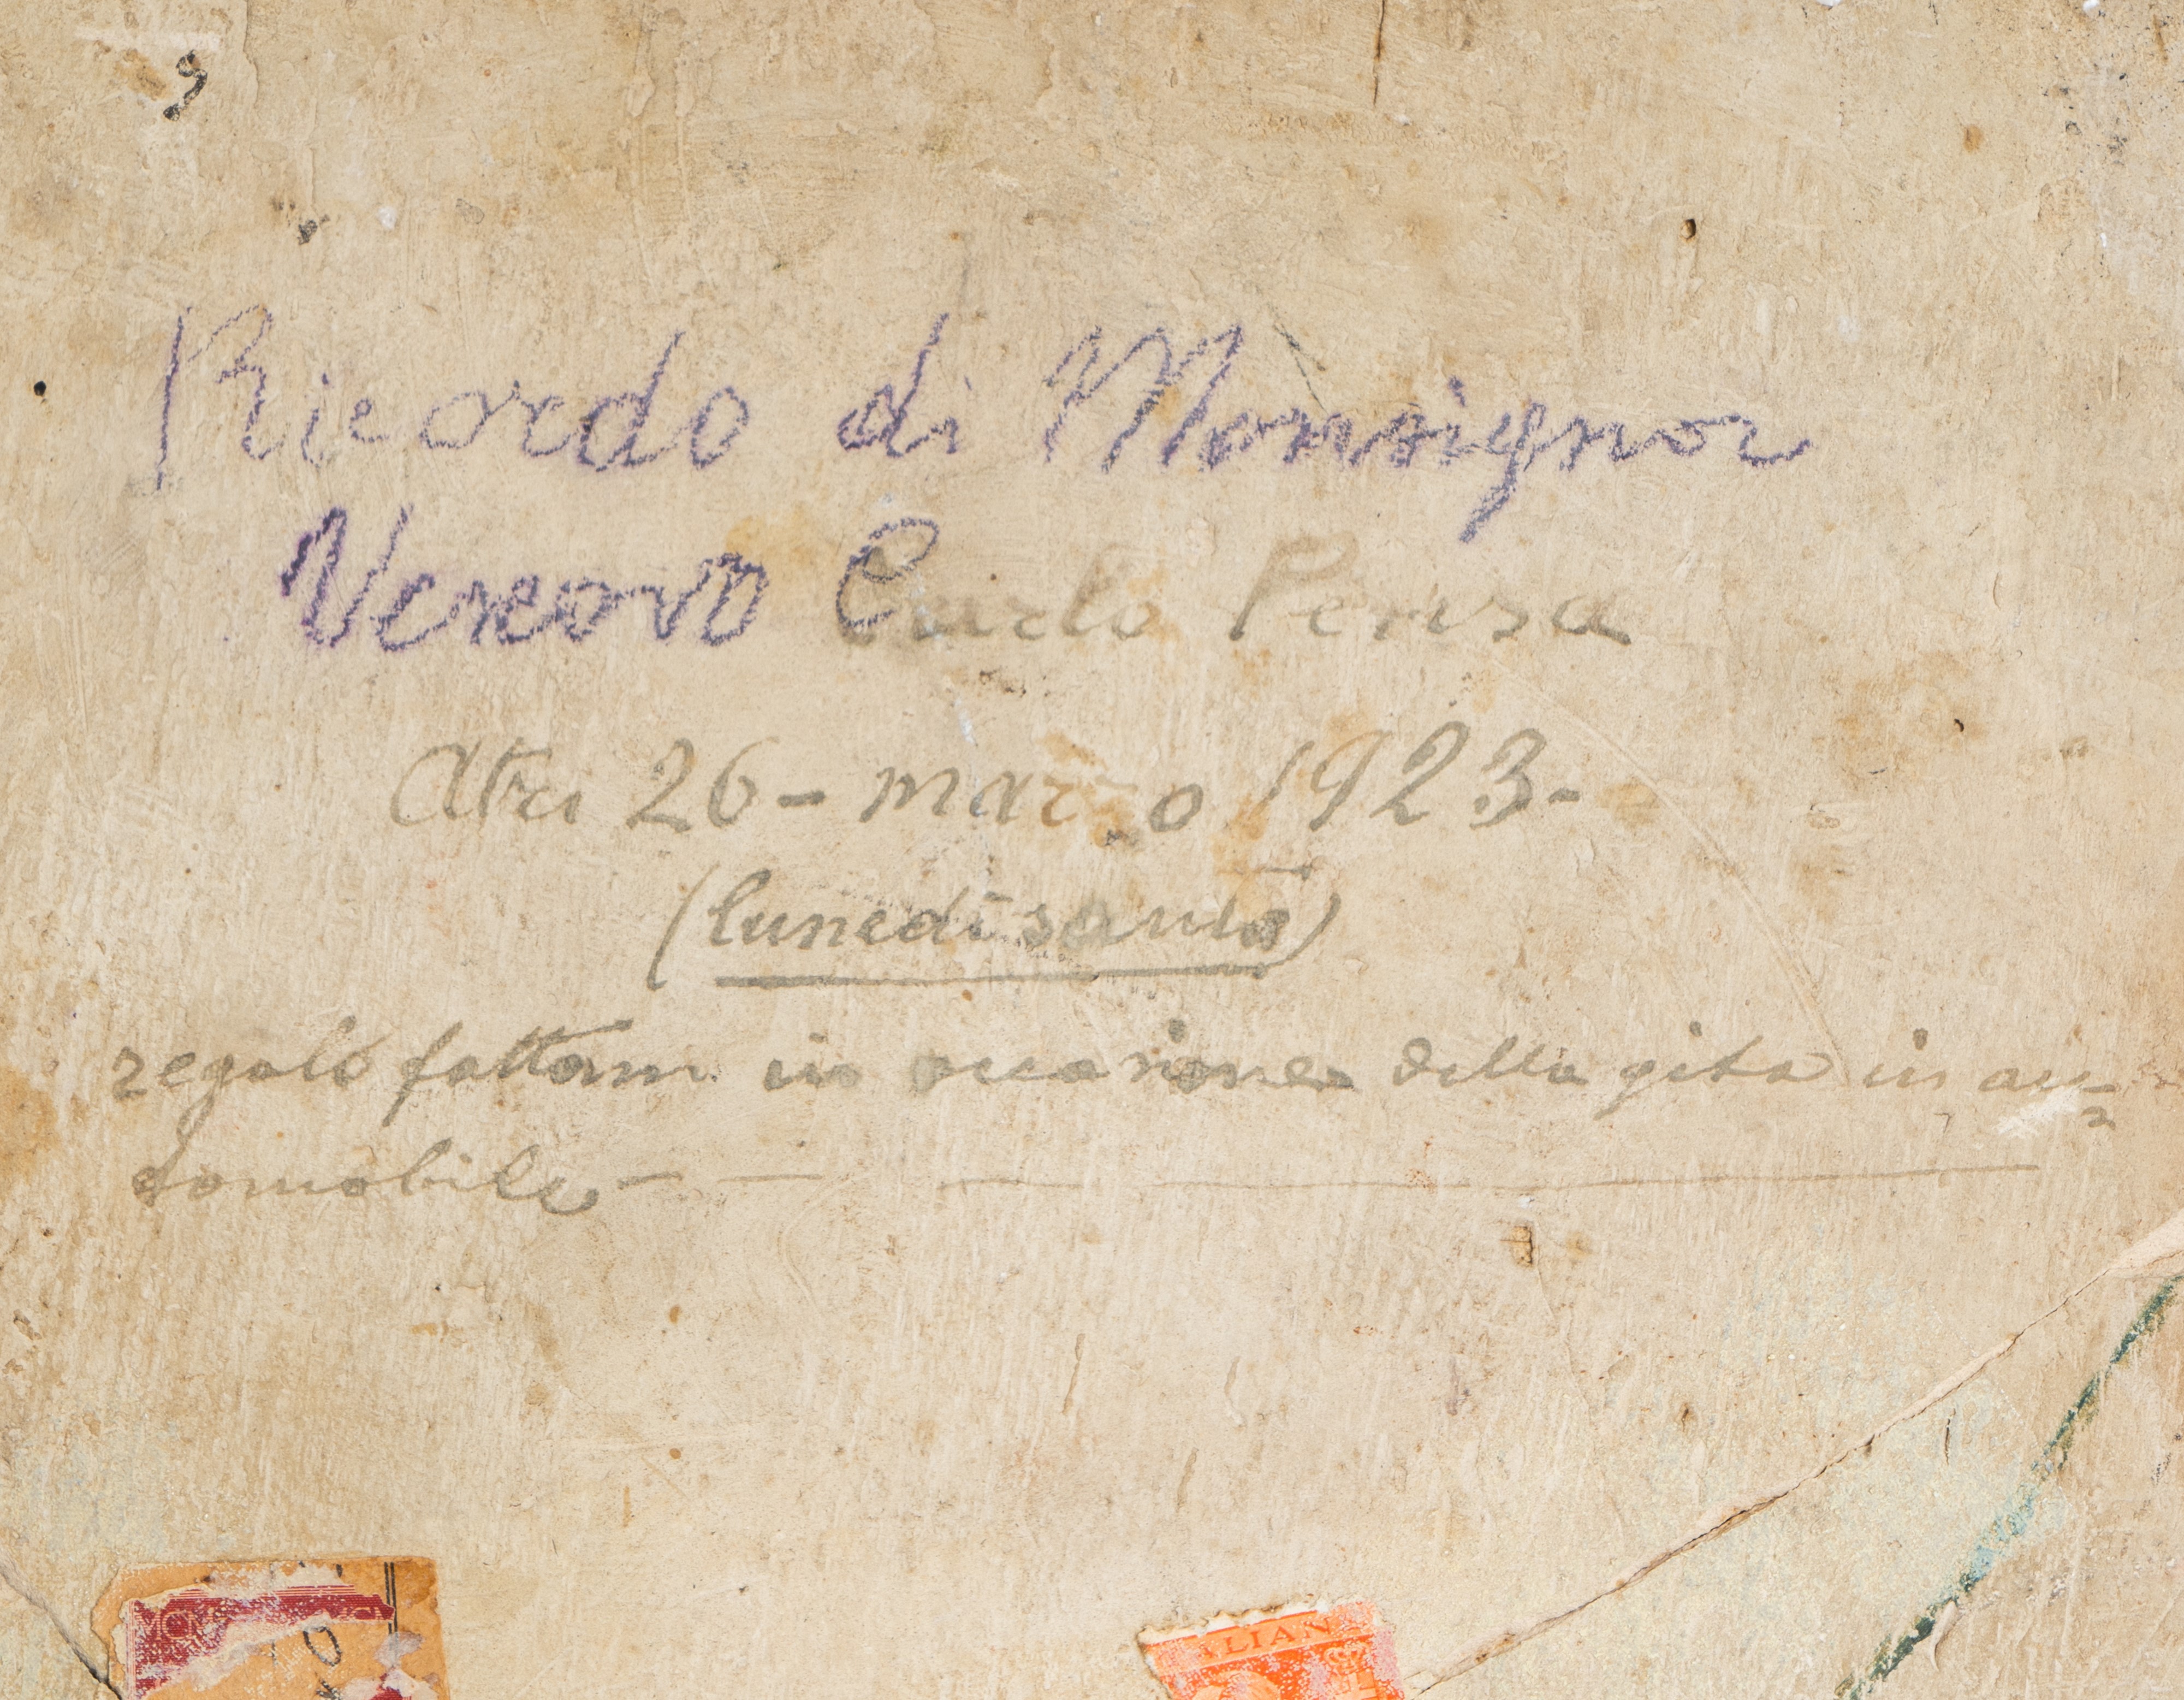 9
Ricordo di Monsignor
Vescovo Carlo Pensa
Atri 26 - marzo 1923 -
(lunedì santo)
regalo fattomi in occasione della gita in au=
tomobile —
ALIAN